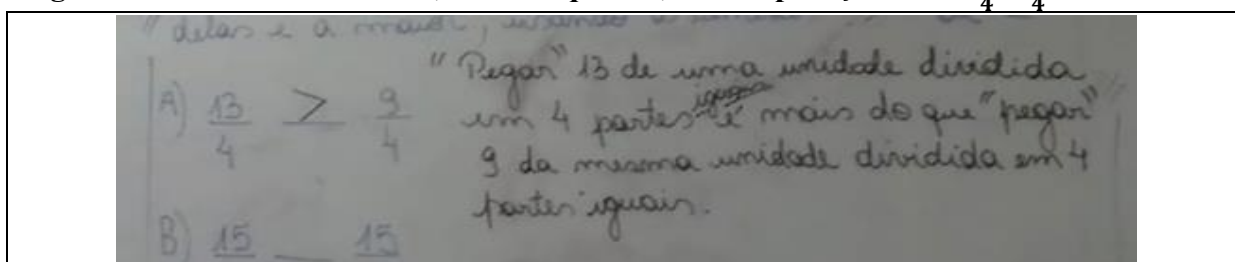 4 4
delas é a maior, usando o
A) 13/4 > 9/4
"Pegar" 13 de uma unidade dividida
em 4 partes iguais é mais do que "pegar"
9 da mesma unidade dividida em 4
partes iguais.
B) 15 __ 15